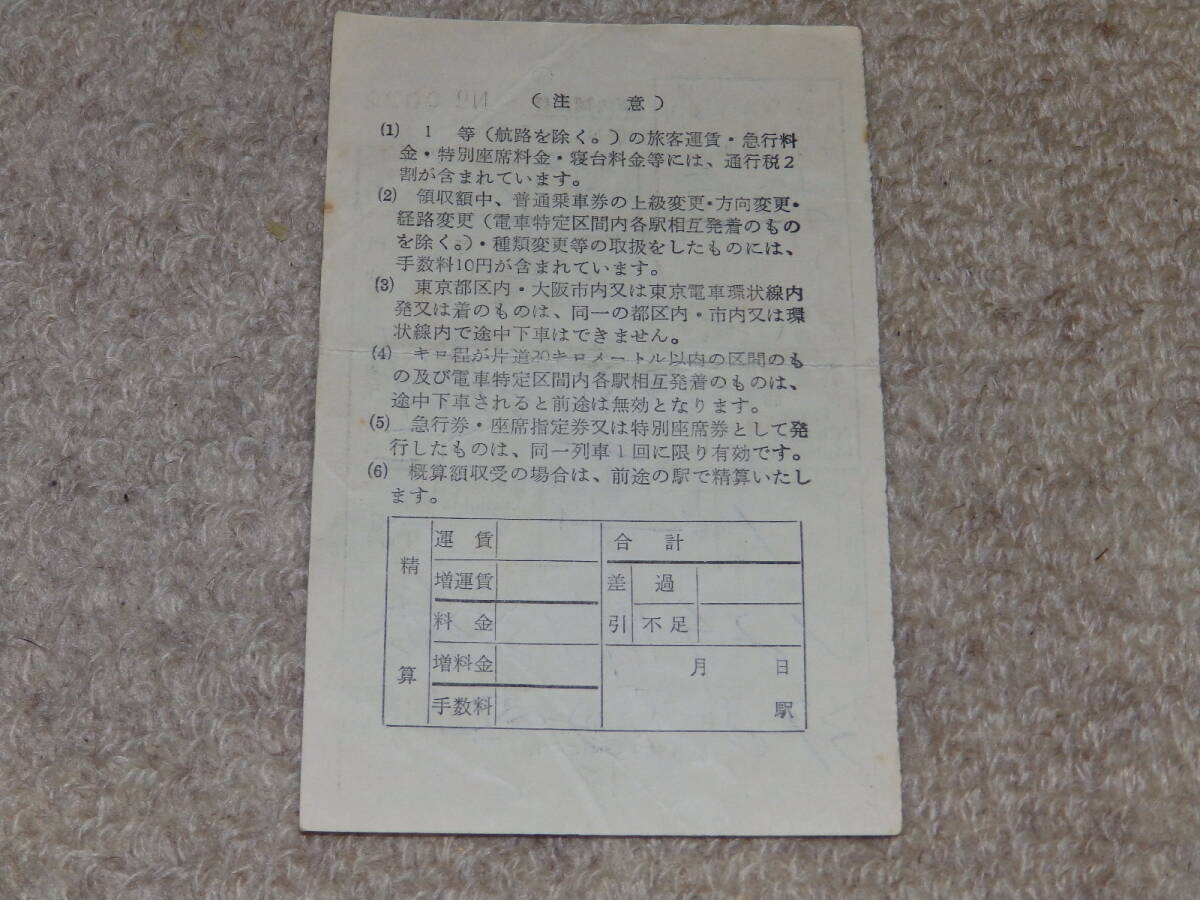 （注　　意）
(1)　1　等（航路を除く。）の旅客運賃・急行料
金・特別座席料金・寝台料金等には、通行税2
割が含まれています。
(2)　領収額中、普通乗車券の上級変更・方向変更・
経路変更（電車特定区間内各駅相互発着のもの
を除く。）・種類変更等の取扱をしたものには、
手数料10円が含まれています。
(3)　東京都区内・大阪市内又は東京電車環状線内
発又は着のものは、同一の都区内・市内又は環
状線内で途中下車はできません。
(4)　キロ程が片道20キロメートル以内の区間のも
の及び電車特定区間内各駅相互発着のものは、
途中下車されると前途は無効となります。
(5)　急行券・座席指定券又は特別座席券として発
行したものは、同一列車1回に限り有効です。
(6)　概算額収受の場合は、前途の駅で精算いたし
ます。
精算
運賃
増運賃
料金
増料金
手数料
合計
差引
過
不足
月　日
駅